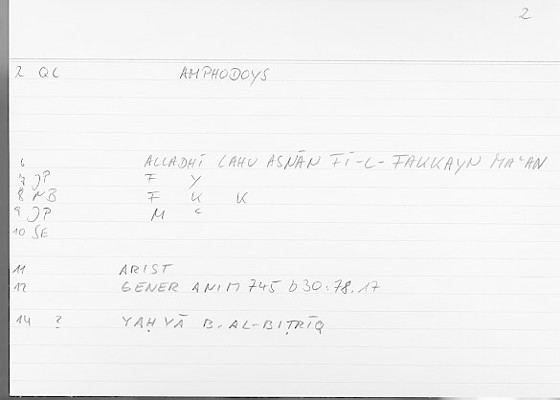 2
2 QC AMPHODOYS
6 ALLADHĪ LAHU ASNĀN FĪ-L-FAKKAYN MAʿAN
7 JP F Y
8 NB F K K
9 JP M ʿ
10 SE
11 ARIST
12 GENER ANIM 745 b30:78.17
14 ? YAḤYĀ B. AL-BIṬRĪQ